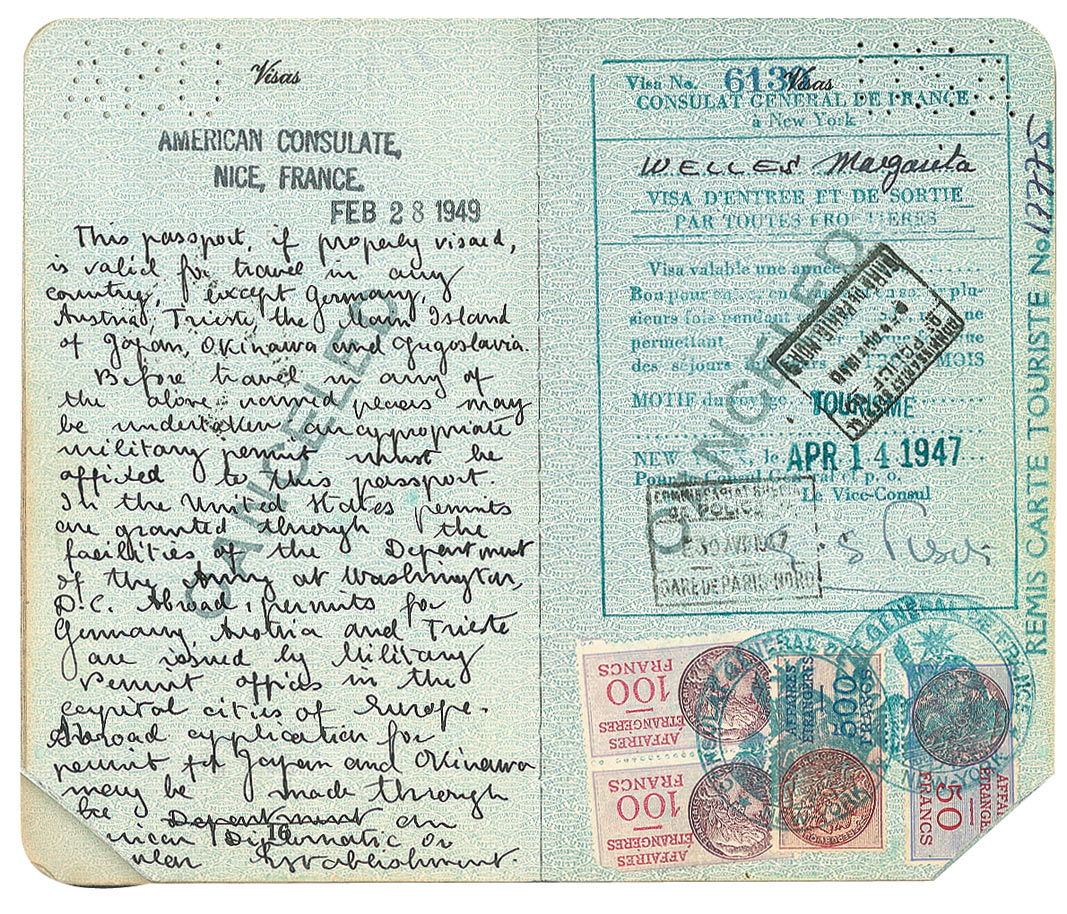 Visas
AMERICAN CONSULATE,
NICE, FRANCE.
FEB 28 1949
This passport, if properly visaed,
is valid for travel in any
country, except Germany,
Austria, Trieste, the Main Island
of Japan, Okinawa and Yugoslavia.
Before travel in any of
the above named places may
be undertaken an appropriate
military permit must be
affixed to this passport.
In the United States permits
are granted through the
facilities of the Department
of the Army at Washington,
D.C. Abroad, permits for
Germany Austria and Trieste
are issued by Military
Permit offices in the
capital cities of Europe.
Abroad application for
permit for Japan and Okinawa
may be made through
the Department an
Diplomatic or
establishment.
16
CANCELLED
Visas
Visa No. 6130
CONSULAT GENERAL DE FRANCE
à New York
WELLES Margarita
VISA D'ENTREE ET DE SORTIE
PAR TOUTES FRONTIERES
Visa valable une année
Bon pour en plu-
sieurs fois pendant
permettant que
des séjours MOIS
MOTIF du voyage
TOURISME
NEW le APR 14 1947
Pour le Consul Général et p. o.
Le Vice-Consul
CANCELLED
COMMISSARIAT SPECIAL
DE POLICE
30 AVR 1947
GARE DE PARIS-NORD
COMMISSARIAT
DE POLICE
GARE DE PARIS-NORD
REMIS CARTE TOURISTE No. 17775
AFFAIRES
ÉTRANGÈRES
100
FRANCS
AFFAIRES
ÉTRANGÈRES
100
FRANCS
AFFAIRES
ÉTRANGÈRES
AFFAI
ÉTRANGÈ
50
FRANCS
CONSULAT GENERAL DE FRANCE
NEW-YORK